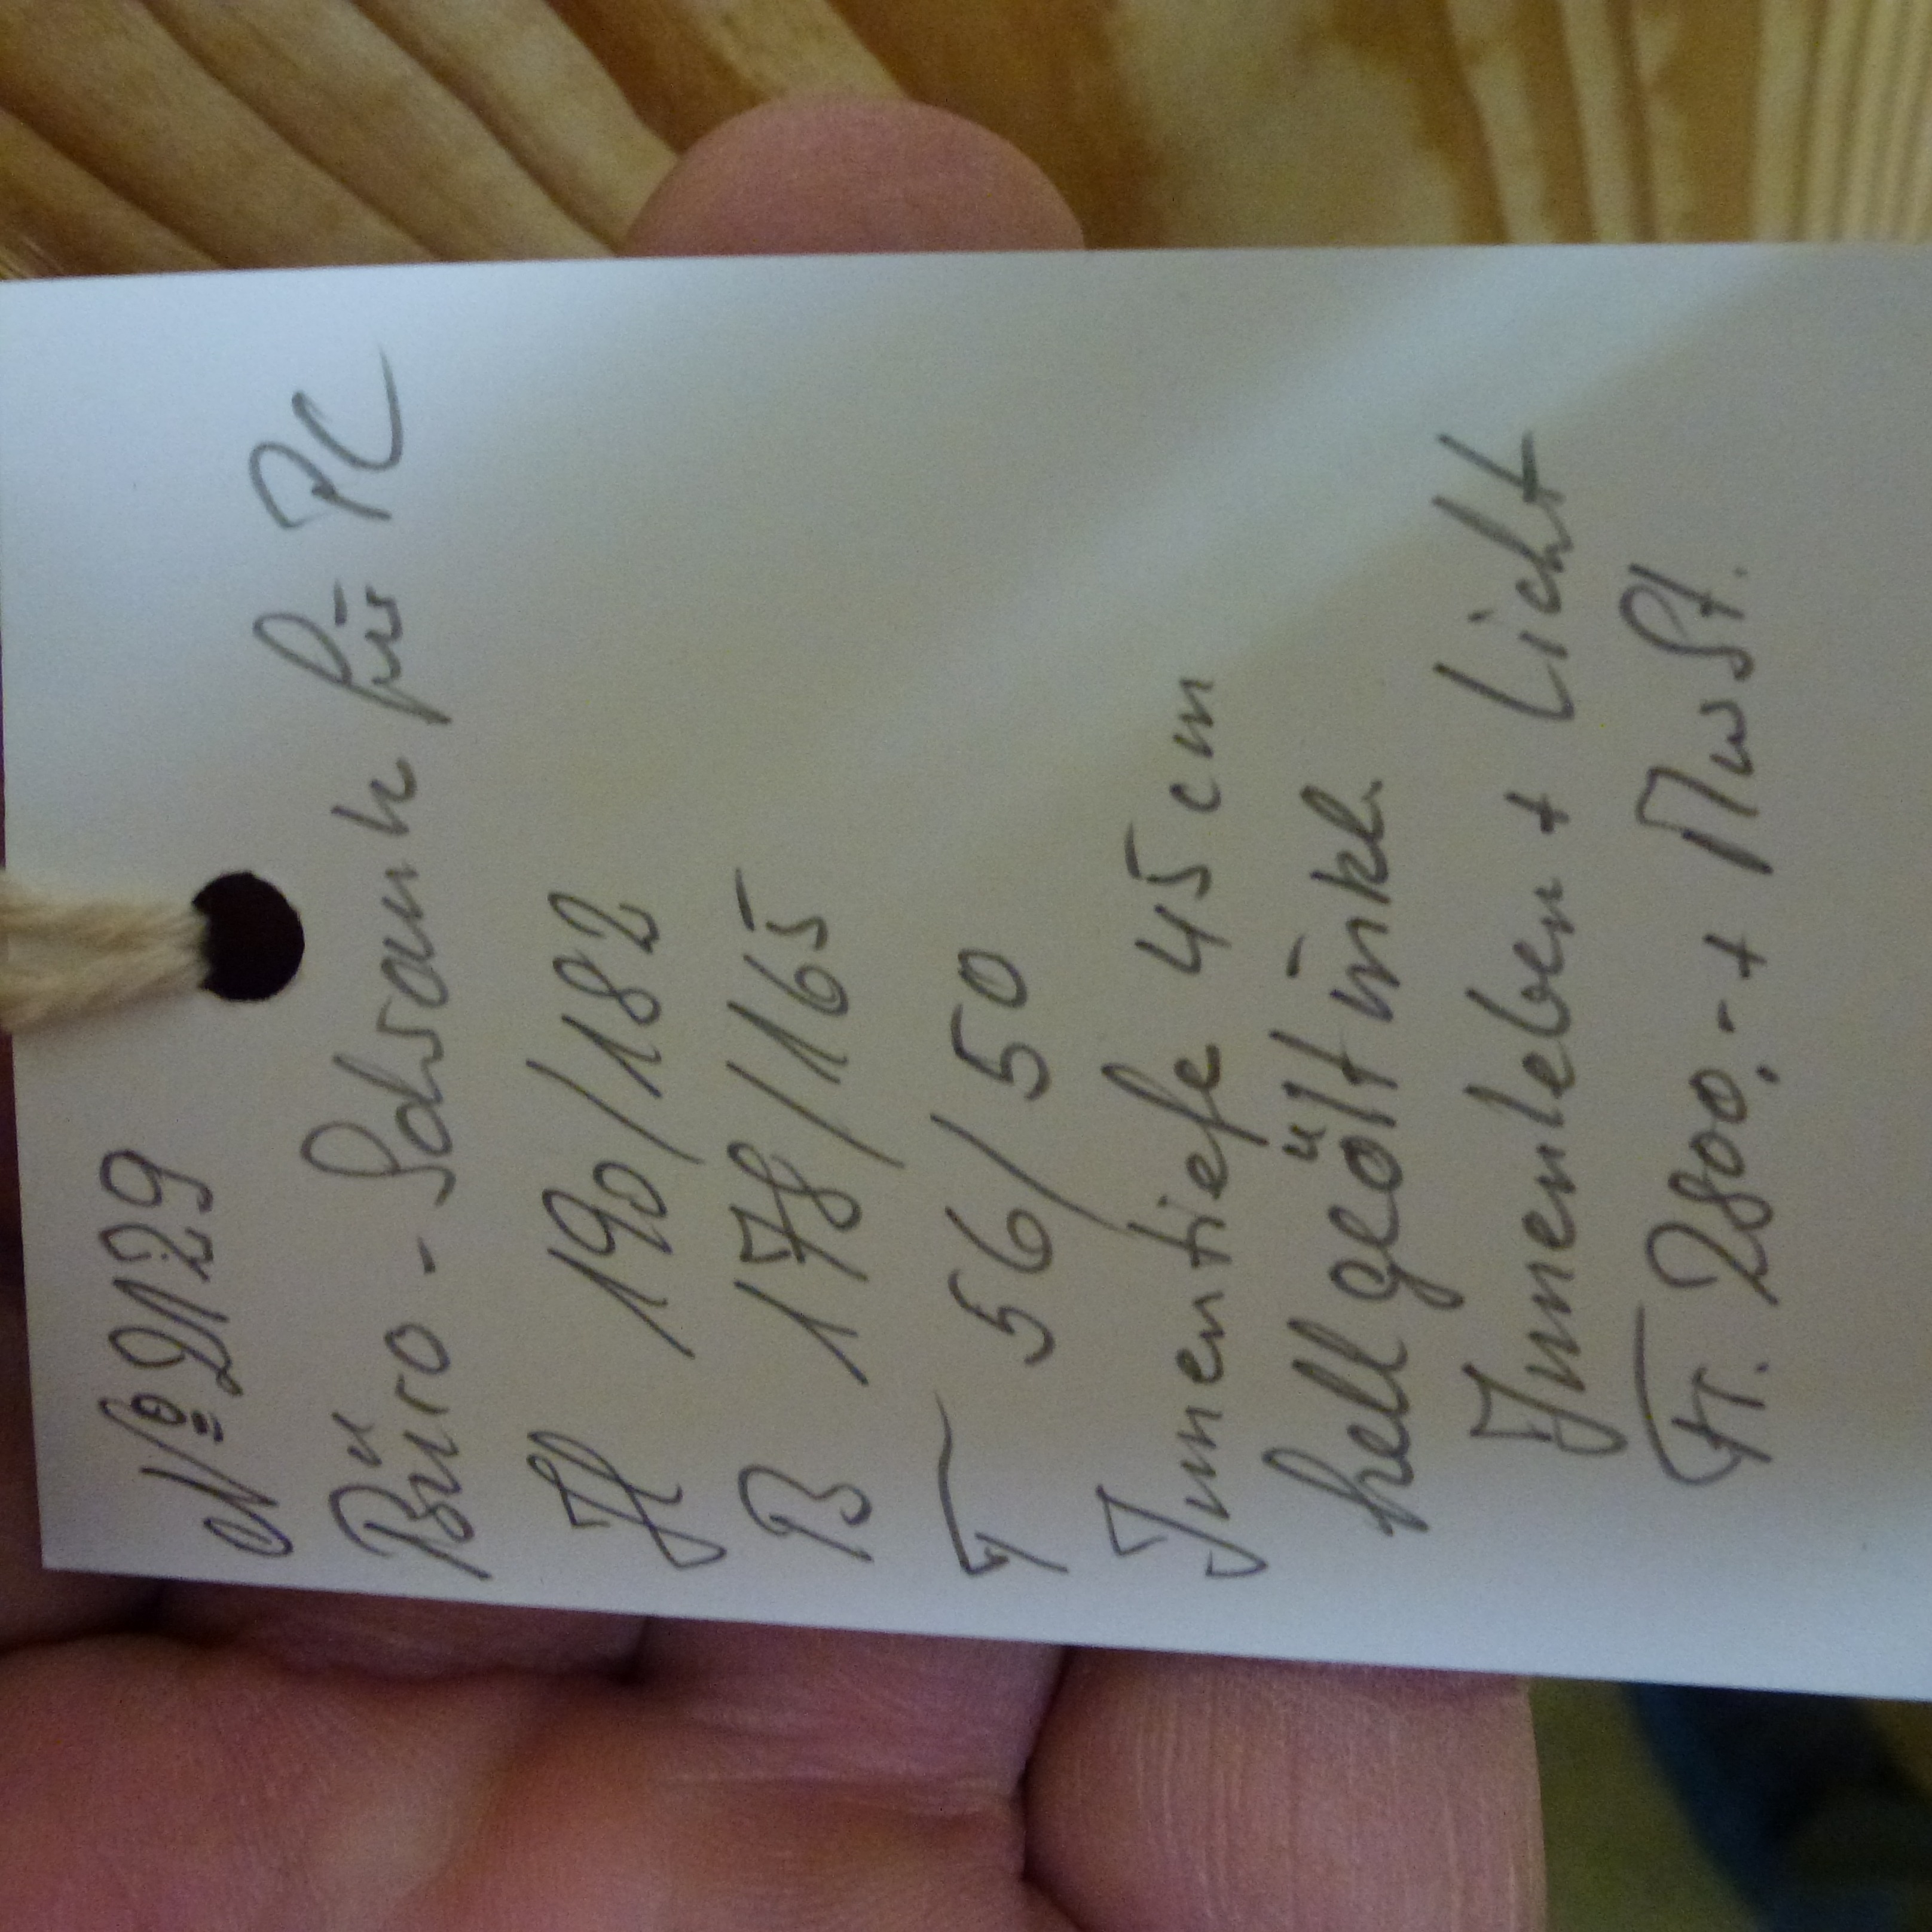 Nº 2129
Büro - Schrank für PC
H 190/182
B 178/165
T 56/50
Innentiefe 45 cm
hell geölt inkl.
Innenleben + Licht
Fr. 2800.- + MwSt.